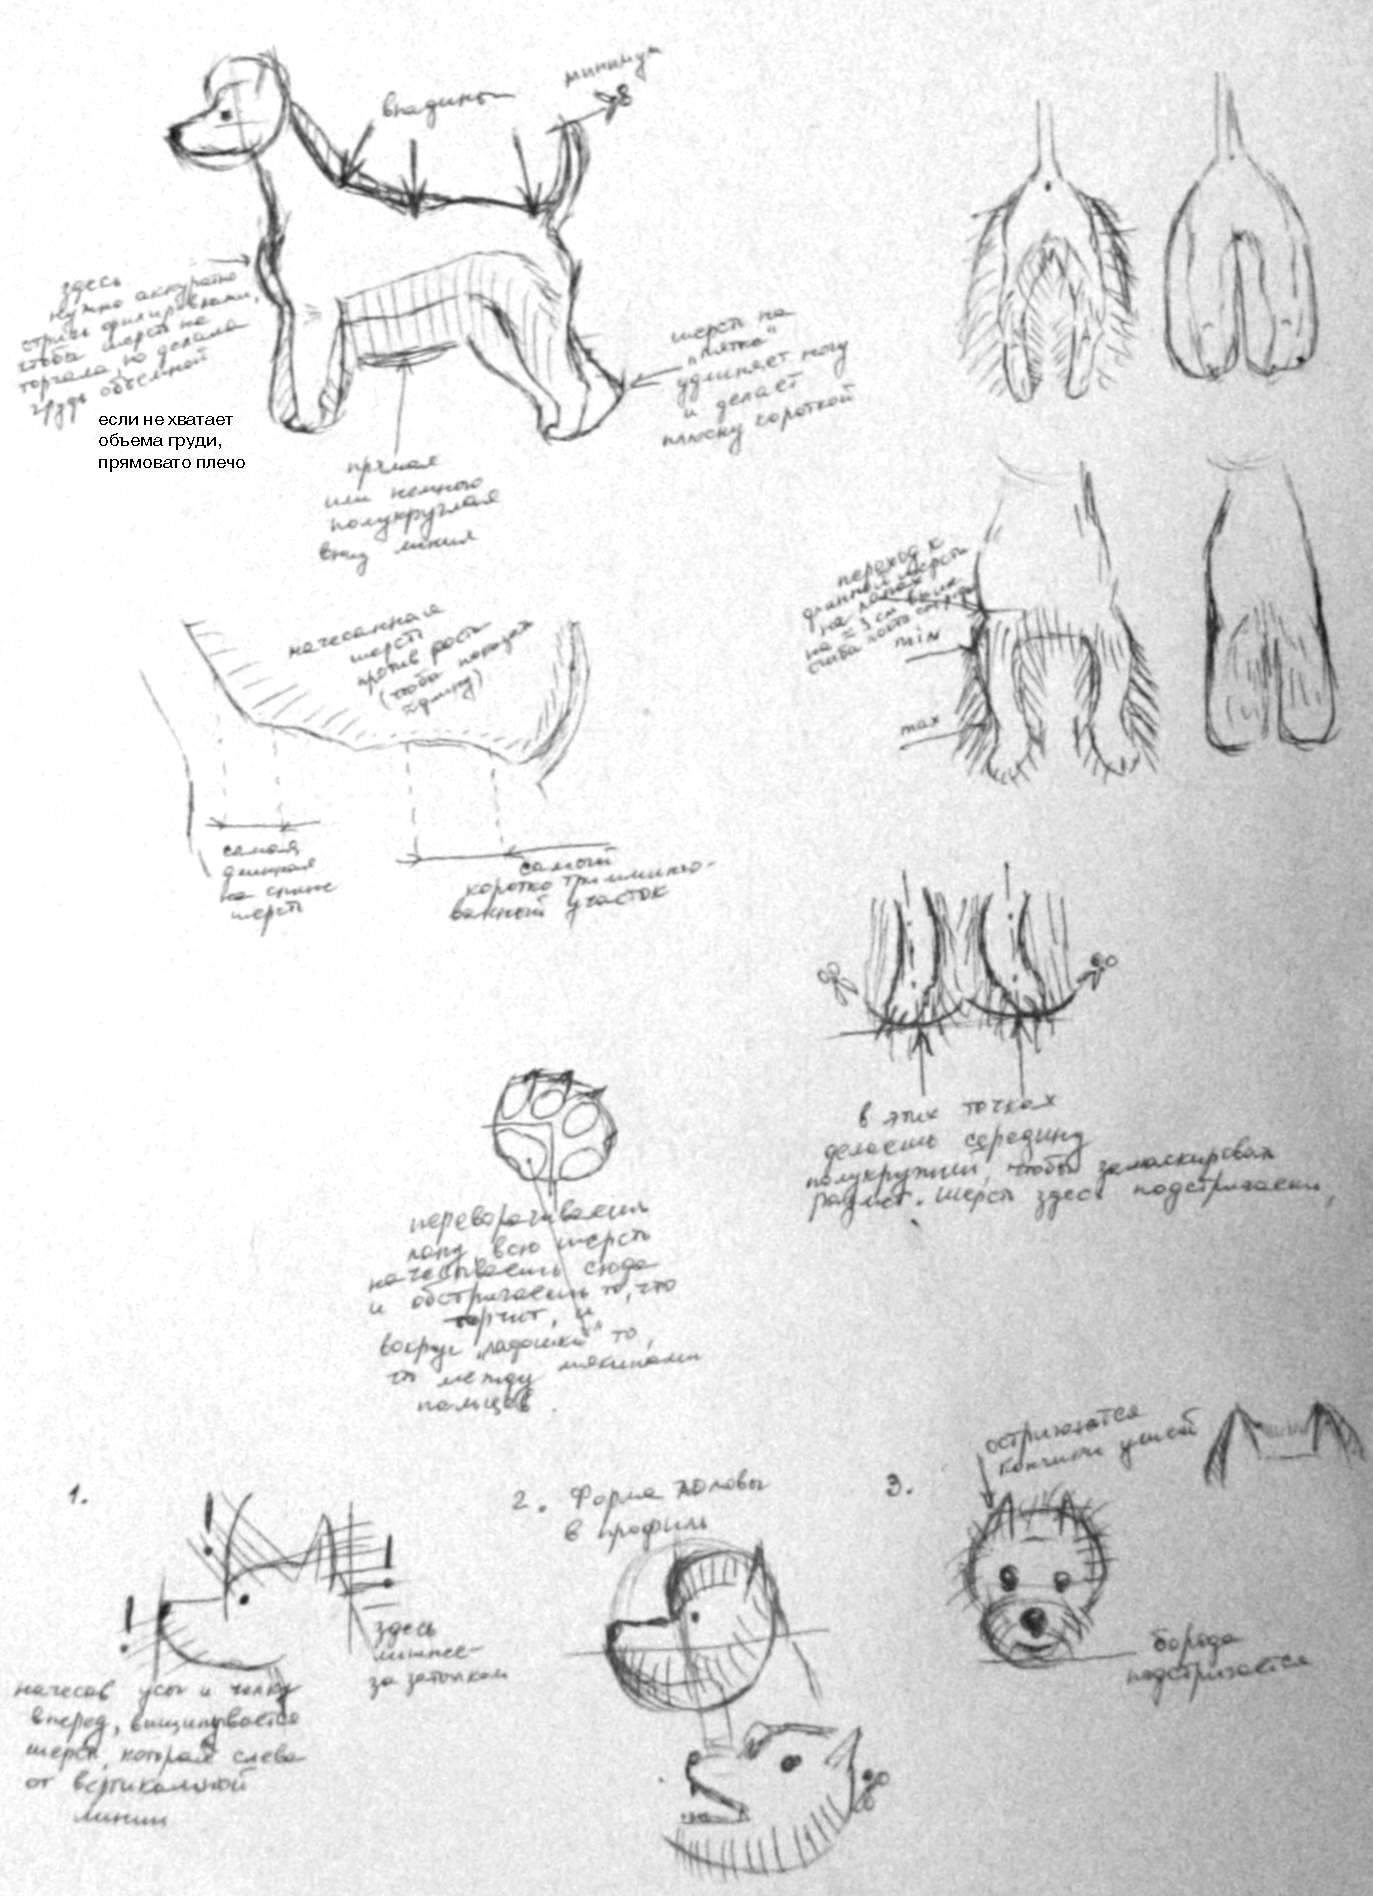 впадины
минимум
здесь
нужно аккуратно
стричь филировками,
чтобы шерсть не
торчала, но делала
грудь объемной
если не хватает
объема груди,
прямовато плечо
шерсть на
„пятке“
удлиняет ногу
и делает
плюсну короткой
прямая
или немного
полукруглая
вниз линия
переход к
длинной шерсти
на лапах
на ≈ 3 см выше
сгиба
min
max
начесанная
шерсть
против роста
(чтобы показать
длину)
самая
длинная
на спине
шерсть
самый
коротко тримминго-
ванный участок
в этих точках
делаешь середину
полукружий, чтобы замаскировать
размет. Шерсть здесь подстригаешь,
переворачиваешь
лапу, всю шерсть
начесываешь сюда
и обстригаешь то, что
торчит, и
вокруг „ладошки“ то,
что между мякишами
пальцев.
1.
здесь
лишнее
за затылком
начесав усы и челку
вперед, выщипывается
шерсть, которая слева
от вертикальной
линии
2. Форма головы
в профиль
3.
остригаются
кончики ушей
борода
подстригается